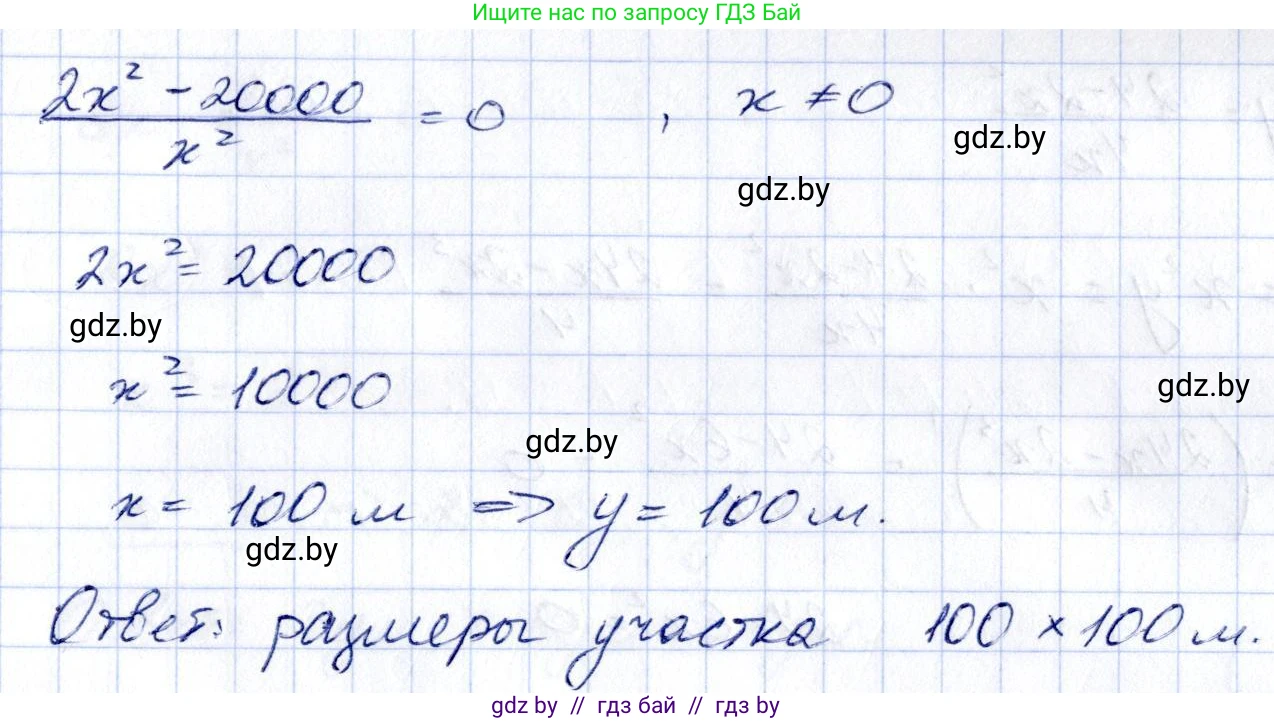 Ищите нас по запросу ГДЗ Бай
2x² - 20000 / x² = 0 , x ≠ 0
gdz.by
gdz.by
2x² = 20000
gdz.by
x² = 10000
gdz.by
gdz.by
x = 100 м => y = 100 м.
gdz.by
Ответ: размеры участка 100 × 100 м.
gdz by // гдз бай // гдз by